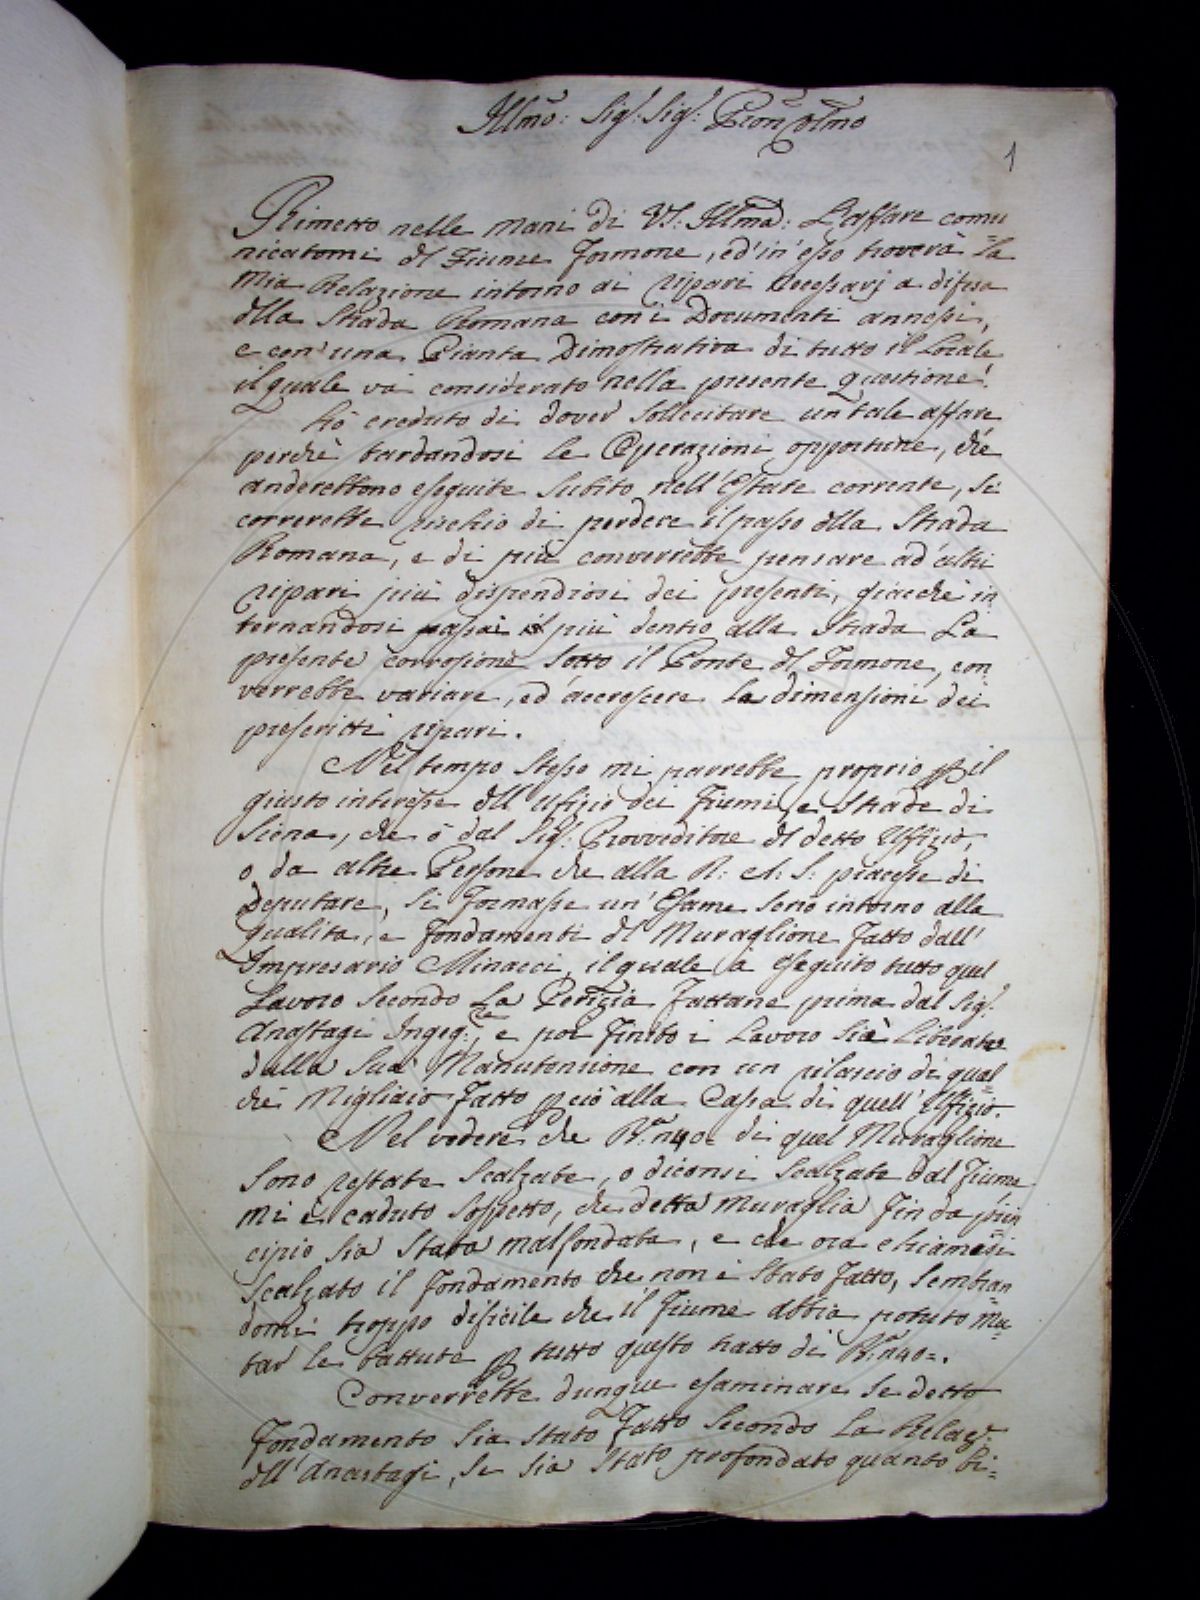 Illmo: Sig:r Sig:r Pron Colmo
1
Rimetto nelle mani di VS: Illma: L'affare comu
nicatomi dl Fiume Formone, ed' in' esso troverà La
Mia Relazione intorno ai ripari necessarj a difesa
dlla Strada Romana con i Documenti annessi,
e con' una Pianta Dimostrativa di tutto il Locale
il quale và considerato nella presente questione.
hò creduto di dover sollecitare un' tale affare
perchè tardandosi le Operazioni opportune, che
anderebbono eseguite Subito nell' Estate corrente, si
correrebbe rischio di perdere il passo dlla Strada
Romana, e di più converrebbe pensare ad' altri
ripari più dispendiosi dei presenti, giacchè in
ternandosi più dentro alla Strada La
presente corrosione Sotto il Ponte dl Formone, con
verrebbe variare, ed' accrescere Le dimensioni dei
prescritti ripari.
Nel tempo Stesso mi parrebbe proprio p il
giusto interesse dll' Ufizio dei Fiumi, e Strade di
Siena, che ò dal Sig:r Provveditore dl detto Uffizio,
o da altre Persone che alla R: A: S: piacesse di
Deputare, si Formasse un' Esame serio intorno alla
qualita, e Fondamenti dl Muraglione Fatto dall'
Impresario Minacci, il quale à eseguito tutto quel
Lavoro Secondo La Perizia Fattane prima dal Sig:r
Anastagi Ingeg:re, e poi Finito i Lavoro Si è Liberato
dalla Sua Manutensione con un rilascio di qual=
che Migliaio Fatto p ciò alla Cassa di quell' Uffizio.
Nel vedere che B:a n 40= di quel Muraglione
Sono restate Scalzate, o diconsi Scalzate dal Fiume
Mi è caduto Sospetto, che detta Muraglia Fin da prin
cipio Sia Stata malfondata, e che ora chiamasi
Scalzato il Fondamento che non è Stato Fatto, Sembran
domi troppo dificile che il Fiume abbia potuto mu=
tar le battute p tutto questo tratto di B:a n 40=.
Converrebbe dunque esaminare Se detto
Fondamento Sia Stato Fatto Secondo La Relaz:e
dll' Anastagi, Se Sia Stato profondato quanto bi=